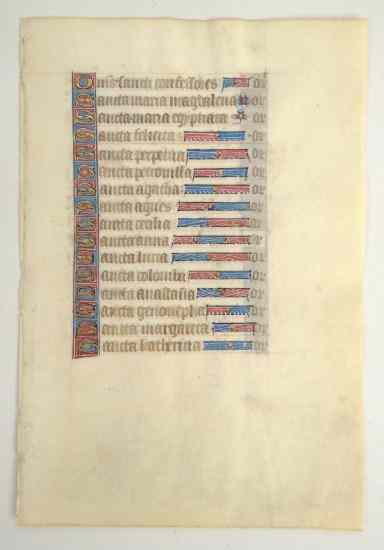 Omnes sancti confessores or
Sancta maria magdalena or
Sancta maria egyptiaca or
Sancta felicitas or
Sancta perpetua or
Sancta petronilla or
Sancta agatha or
Sancta agnes or
Sancta cecilia or
Sancta anna or
Sancta lucia or
Sancta columba or
Sancta anastasia or
Sancta genouepha or
Sancta margareta or
Sancta katherina or